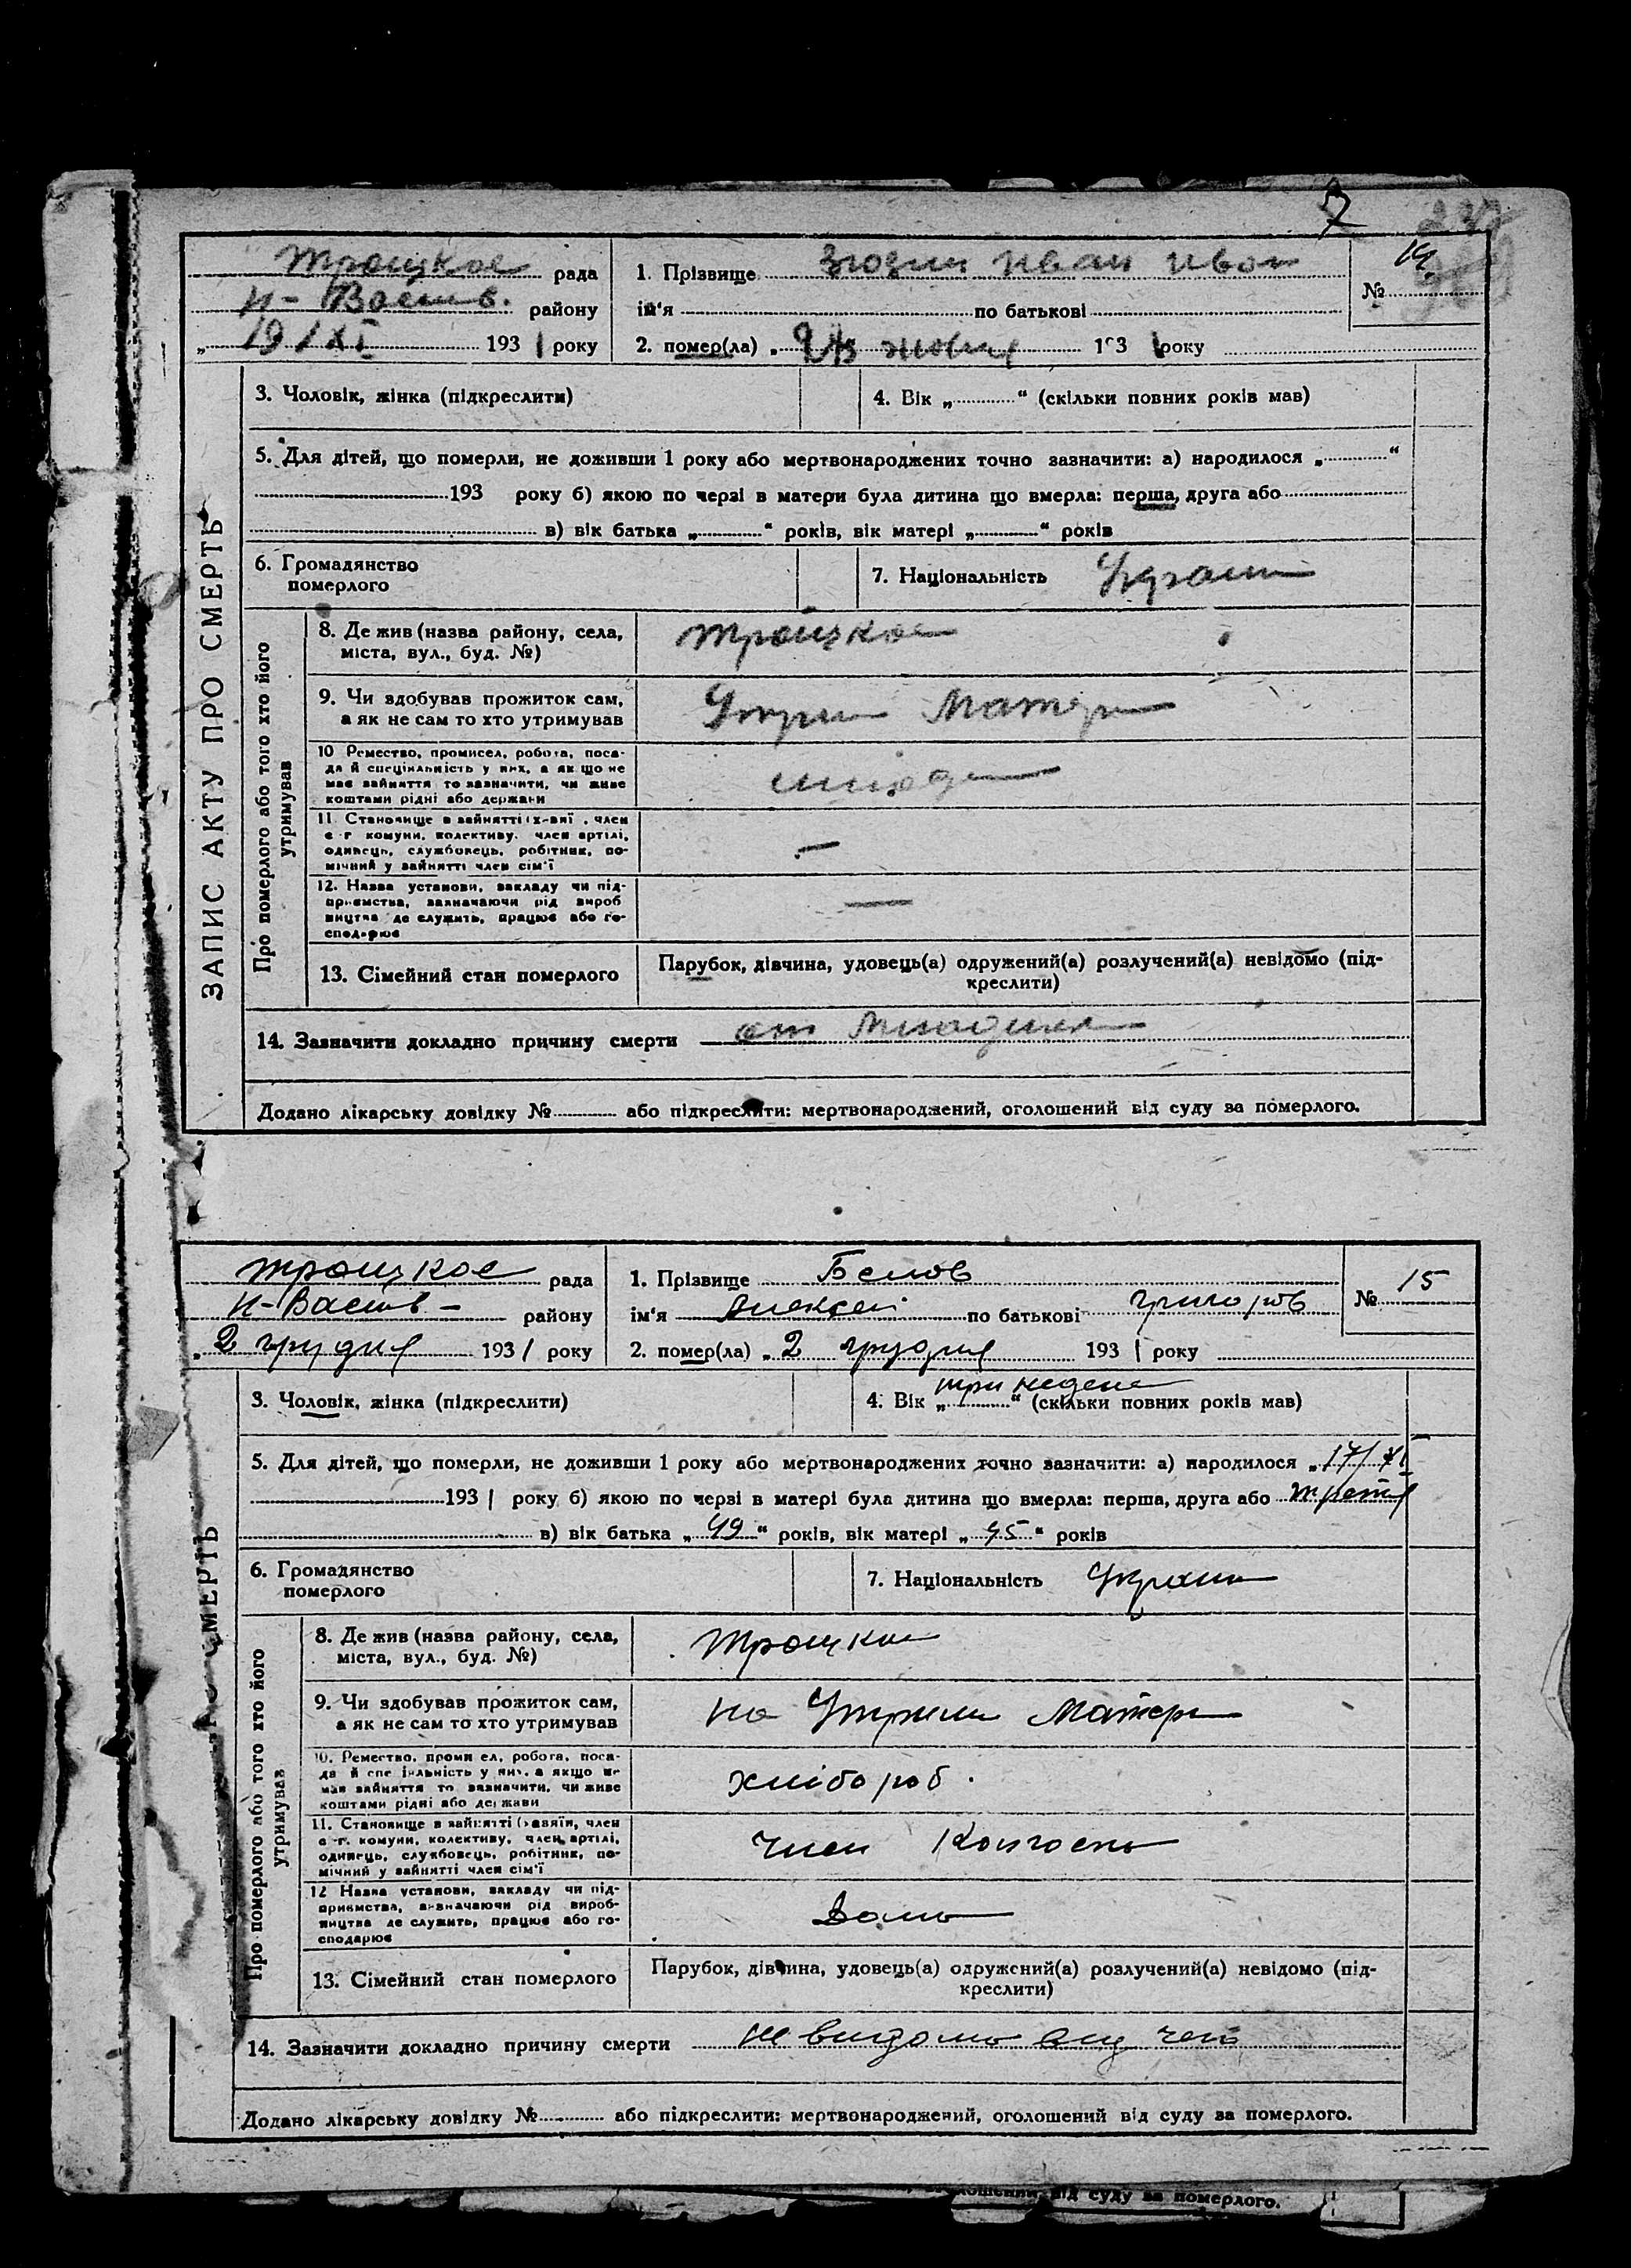 7
Троицкое рада
Н-Васив. району
„ 19/XI 1931 року
1. Прізвище Зюзин Иван Иван
ім'я по батькові
№ 14
2. помер(ла) „ жовтня 1931 року
ЗАПИС АКТУ ПРО СМЕРТЬ
3. Чоловік, жінка (підкреслити)
4. Вік „ “ (скільки повних років мав)
5. Для дітей, що померли, не доживши 1 року або мертвонароджених точно зазначити: а) народилося „ “
193 року б) якою по черзі в матери була дитина що вмерла: перша, друга або
в) вік батька „ “ років, вік матері „ “ років
6. Громадянство
померлого
7. Національність Украин
Про померлого або того хто його
утримував
8. Де жив (назва району, села,
міста, вул., буд. №)
Троицкое
9. Чи здобував прожиток сам,
а як не сам то хто утримував
Утрим Матери
10 Ремество, промисел, робота, поса-
да й спеціяльність у них, а як що не
має зайняття то зазначити, чи живе
коштами рідні або держави
11 Становище в зайнятті (хазяї, член
с-г комуни, колективу, член артілі,
одинець, службовець, робітник, по-
мічний у зайнятті член сім'ї
—
12. Назва установи, закладу чи під-
приємства, зазначаючи рід вироб
ництва де служить, працює або го-
сподарює
—
13. Сімейний стан померлого
Парубок, дівчина, удовець(а) одружений(а) розлучений(а) невідомо (під-
креслити)
14. Зазначити докладно причину смерти от
Додано лікарську довідку № або підкреслити: мертвонароджений, оголошений від суду за померлого.
Троицкое рада
Н-Васив- району
„ 2 грудня 1931 року
1. Прізвище Белов
ім'я Алексей по батькові Григоров
№ 15
2. помер(ла) „ 2 грудня 1931 року
СМЕРТЬ
3. Чоловік, жінка (підкреслити)
4. Вік „ три недели “ (скільки повних років мав)
5. Для дітей, що померли, не доживши 1 року або мертвонароджених точно зазначити: а) народилося „ 17/XI
1931 року б) якою по черзі в матері була дитина що вмерла: перша, друга або третя
в) вік батька „ 49 “ років, вік матері „ 45 “ років
6. Громадянство
померлого
7. Національність Украин
Про померлого або того хто його
утримував
8. Де жив (назва району, села,
міста, вул., буд. №)
Троицкое
9. Чи здобував прожиток сам,
а як не сам то хто утримував
на Утрим Матери
10. Ремество, промисел, робота, поса-
да й спеціяльність у них, а якщо не
має зайняття то зазначити, чи живе
коштами рідні або держави
хлібороб.
11. Становище в зайнятті (хазяїн, член
с-г. комуни, колективу, член артілі,
одинець, службовець, робітник, по-
мічний у зайнятті член сім'ї
Член Колгоспу
12 Назва установи, закладу чи під-
приємства, зазначаючи рід вироб-
ництва де служить, працює або го-
сподарює
13. Сімейний стан померлого
Парубок, дівчина, удовець(а) одружений(а) розлучений(а) невідомо (під-
креслити)
14. Зазначити докладно причину смерти не видомо чего
Додано лікарську довідку № або підкреслити: мертвонароджений, оголошений від суду за померлого.
оголошений від суду за померлого.